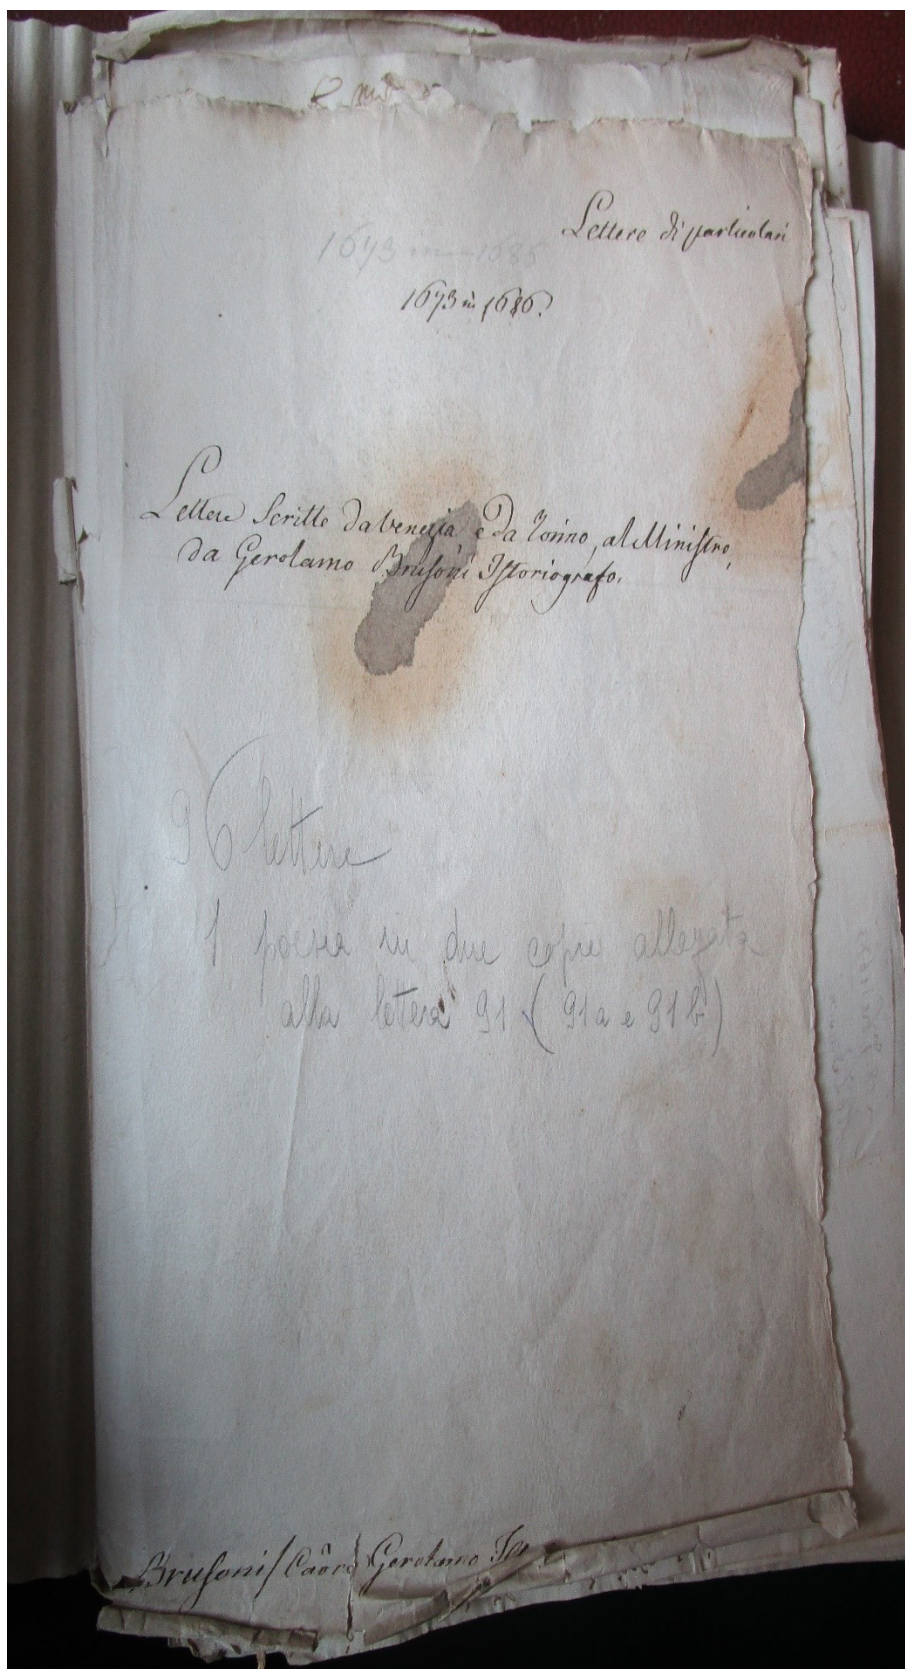 Lettere di particolari
1673 in 1685
1673 in 1686.
Lettere Scritte da Venezia e Da Torino, al Ministro,
da Gerolamo Brusoni Istoriografo.
96 lettere
1 poesia in due copie allegata
alla lettera 91 (91a e 91b)
Brusoni / Caõre Gerolamo